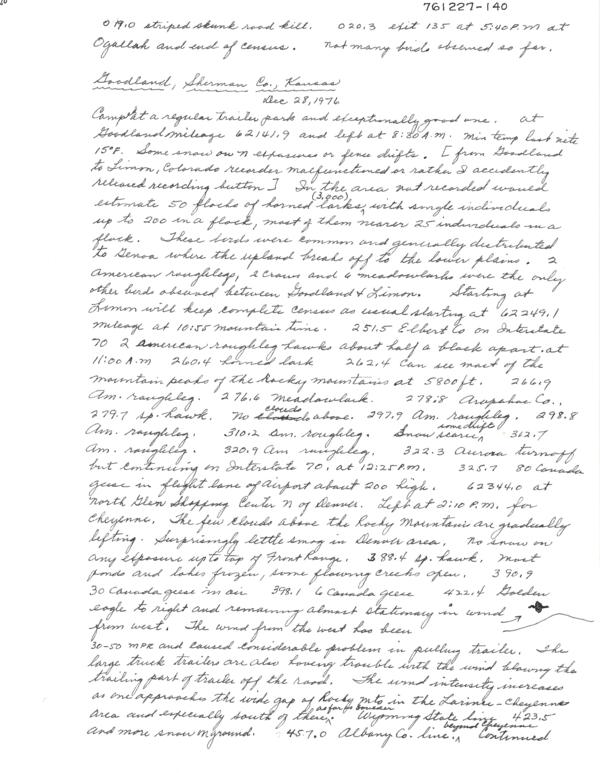 761227-140
019.0 striped skunk road kill. 020.3 exit 135 at 5:40 P.M at
Ogallah and end of census. not many birds observed so far.
Goodland, Sherman Co., Kansas
Dec 28, 1976
Camp at a regular trailer park and exceptionally good one. at
Goodland mileage 62141.9 and left at 8:30 A.M. Min temp last nite
15°F. Some snow on N exposures or fence drifts. [from Goodland
to Limon, Colorado recorder malfunctioned or rather I accidently
released recording button] In the area not recorded would
estimate 50 flocks of horned larks (3,000), with single individuals
up to 200 in a flock, most of them nearer 25 individuals in a
flock. These birds were common and generally distributed
to Genoa where the upland breaks off to the lower plains. 2
American roughlegs, 2 crows and 6 meadowlarks were the only
other birds observed between Goodland & Limon. Starting at
Limon will keep complete census as usual starting at 62249.1
mileage at 10:55 mountain time. 251.5 Elbert Co on Interstate
70 2 American roughleg hawks about half a block apart. at
11:00 A.M 260.4 horned lark 262.4 Can see most of the
mountain peaks of the Rocky mountains at 5800 ft. 266.9
Am. roughleg. 276.6 meadowlark. 278.8 Arapahoe Co.,
279.7 sp. hawk. No clouds above. 297.9 Am. roughleg. 298.8
Am. roughleg. 310.2 Am. roughleg. Snow scarce some drifts 312.7
Am. roughleg. 320.9 Am roughleg. 322.3 Aurora turnoff
but continuing on Interstate 70. at 12:25 P.M. 325.7 80 Canada
geese in flight lane of Airport about 200 high. 62344.0 at
north Glen Shopping Center N of Denver. Left at 2:10 P.M. for
Cheyenne. The few clouds above the Rocky Mountains are gradually
lifting. Surprisingly little smog in Denver area. No snow on
any exposure up to top of Front Range. 388.4 sp. hawk. Most
ponds and lakes frozen, some flowing creeks open. 390.9
30 Canada geese in air 398.1 6 Canada geese 422.4 Golden
eagle to right and remaining almost stationary in wind
from west. The wind from the west has been
30-50 MPR and caused considerable problem in pulling trailer. The
large truck trailers are also having trouble with the wind blowing the
trailing part of trailer off the road. The wind intensity increases
as one approaches the wide gap of Rocky Mts in the Laramie-Cheyenne
area and especially south of there, as far as Boulder. Wyoming State line 423.5
and more snow on ground. 457.0 Albany Co. line. beyond Cheyenne Continued